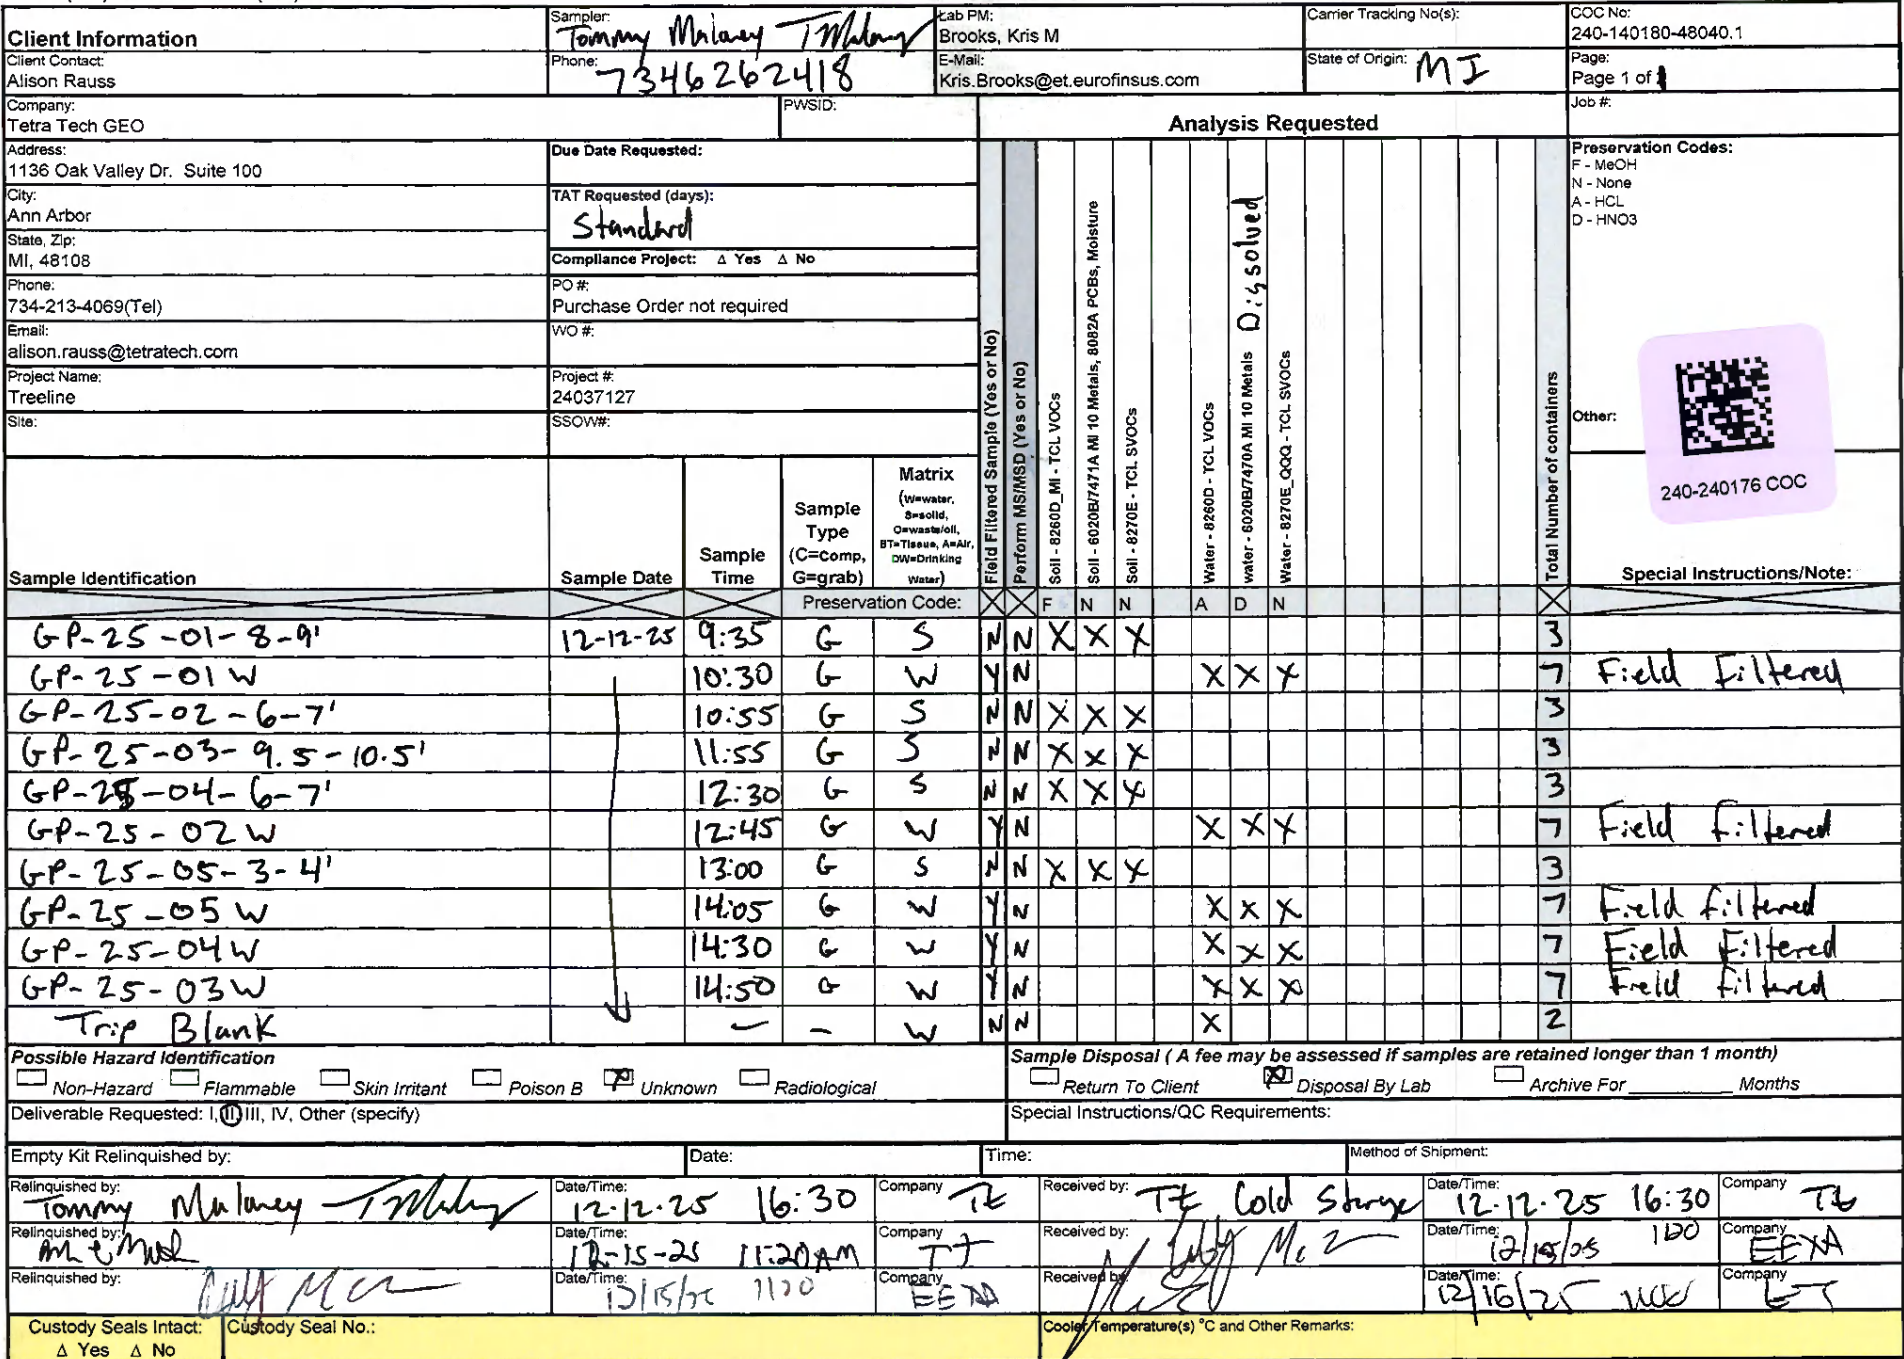 Client Information
Sampler:
Tommy Malaney TMalaney
Lab PM:
Brooks, Kris M
Carrier Tracking No(s):
COC No:
240-140180-48040.1
Client Contact:
Alison Rauss
Phone:
7346262418
E-Mail:
Kris.Brooks@et.eurofinsus.com
State of Origin: MI
Page:
Page 1 of 1
Company:
Tetra Tech GEO
PWSID:
Analysis Requested
Job #:
Address:
1136 Oak Valley Dr. Suite 100
Due Date Requested:
Preservation Codes:
F - MeOH
N - None
A - HCL
D - HNO3
City:
Ann Arbor
TAT Requested (days):
Standard
State, Zip:
MI, 48108
Compliance Project: Δ Yes Δ No
Phone:
734-213-4069(Tel)
PO #:
Purchase Order not required
Email:
alison.rauss@tetratech.com
WO #:
Project Name:
Treeline
Project #:
24037127
Site:
SSOW#:
Other:
240-240176 COC
Sample Identification
Sample Date
Sample Time
Sample Type (C=comp, G=grab)
Matrix (W=water, S=solid, O=waste/oil, BT=Tissue, A=Air, DW=Drinking Water)
Field Filtered Sample (Yes or No)
Perform MS/MSD (Yes or No)
Soil - 8260D_MI - TCL VOCs
Soil - 6020B/7471A MI 10 Metals, 8082A PCBs, Moisture
Soil - 8270E - TCL SVOCs
Water - 8260D - TCL VOCs
water - 6020B/7470A MI 10 Metals Dissolved
Water - 8270E_QQQ - TCL SVOCs
Total Number of containers
Special Instructions/Note:
Preservation Code: X X F N N A D N X
GP-25-01-8-9' 12-12-25 9:35 G S N N X X X 3
GP-25-01W 10:30 G W Y N X X X 7 Field Filtered
GP-25-02-6-7' 10:55 G S N N X X X 3
GP-25-03-9.5-10.5' 11:55 G S N N X X X 3
GP-25-04-6-7' 12:30 G S N N X X X 3
GP-25-02W 12:45 G W Y N X X X 7 Field Filtered
GP-25-05-3-4' 13:00 G S N N X X X 3
GP-25-05W 14:05 G W Y N X X X 7 Field filtered
GP-25-04W 14:30 G W Y N X X X 7 Field Filtered
GP-25-03W 14:50 G W Y N X X X 7 Field Filtered
Trip Blank – – W N N X 2
Possible Hazard Identification
Non-Hazard Flammable Skin Irritant Poison B X Unknown Radiological
Sample Disposal ( A fee may be assessed if samples are retained longer than 1 month)
Return To Client X Disposal By Lab Archive For ______ Months
Deliverable Requested: I, II, III, IV, Other (specify)
Special Instructions/QC Requirements:
Empty Kit Relinquished by:
Date:
Time:
Method of Shipment:
Relinquished by: Tommy Malaney TMalaney
Date/Time: 12-12-25 16:30
Company Tt
Received by: Tt Cold Storage
Date/Time: 12-12-25 16:30
Company Tt
Relinquished by:
Date/Time: 12-15-25 11:20AM
Company TT
Received by:
Date/Time: 12/15/25 1120
Company EEXA
Relinquished by:
Date/Time: 12/15/25 1120
Company EEXA
Received by:
Date/Time: 12/16/25
Company ET
Custody Seals Intact:
Δ Yes Δ No
Custody Seal No.:
Cooler Temperature(s) °C and Other Remarks: